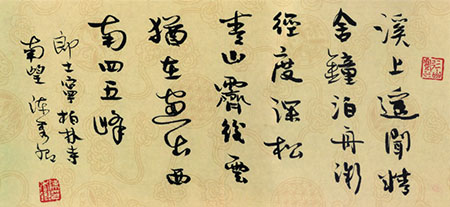 溪上遥聞精
舍鐘泊舟微
徑度深松
青山霽後雲
猶在畫出西
南四五峰
郎士寧柏林寺
南望 陳秀卿